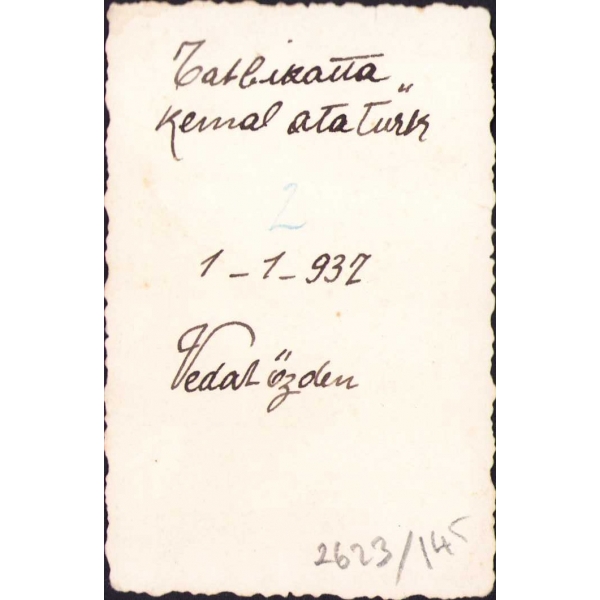 Tatbikatta
Kemal atatürk
2
1-1-937
Vedat özden
2623/145